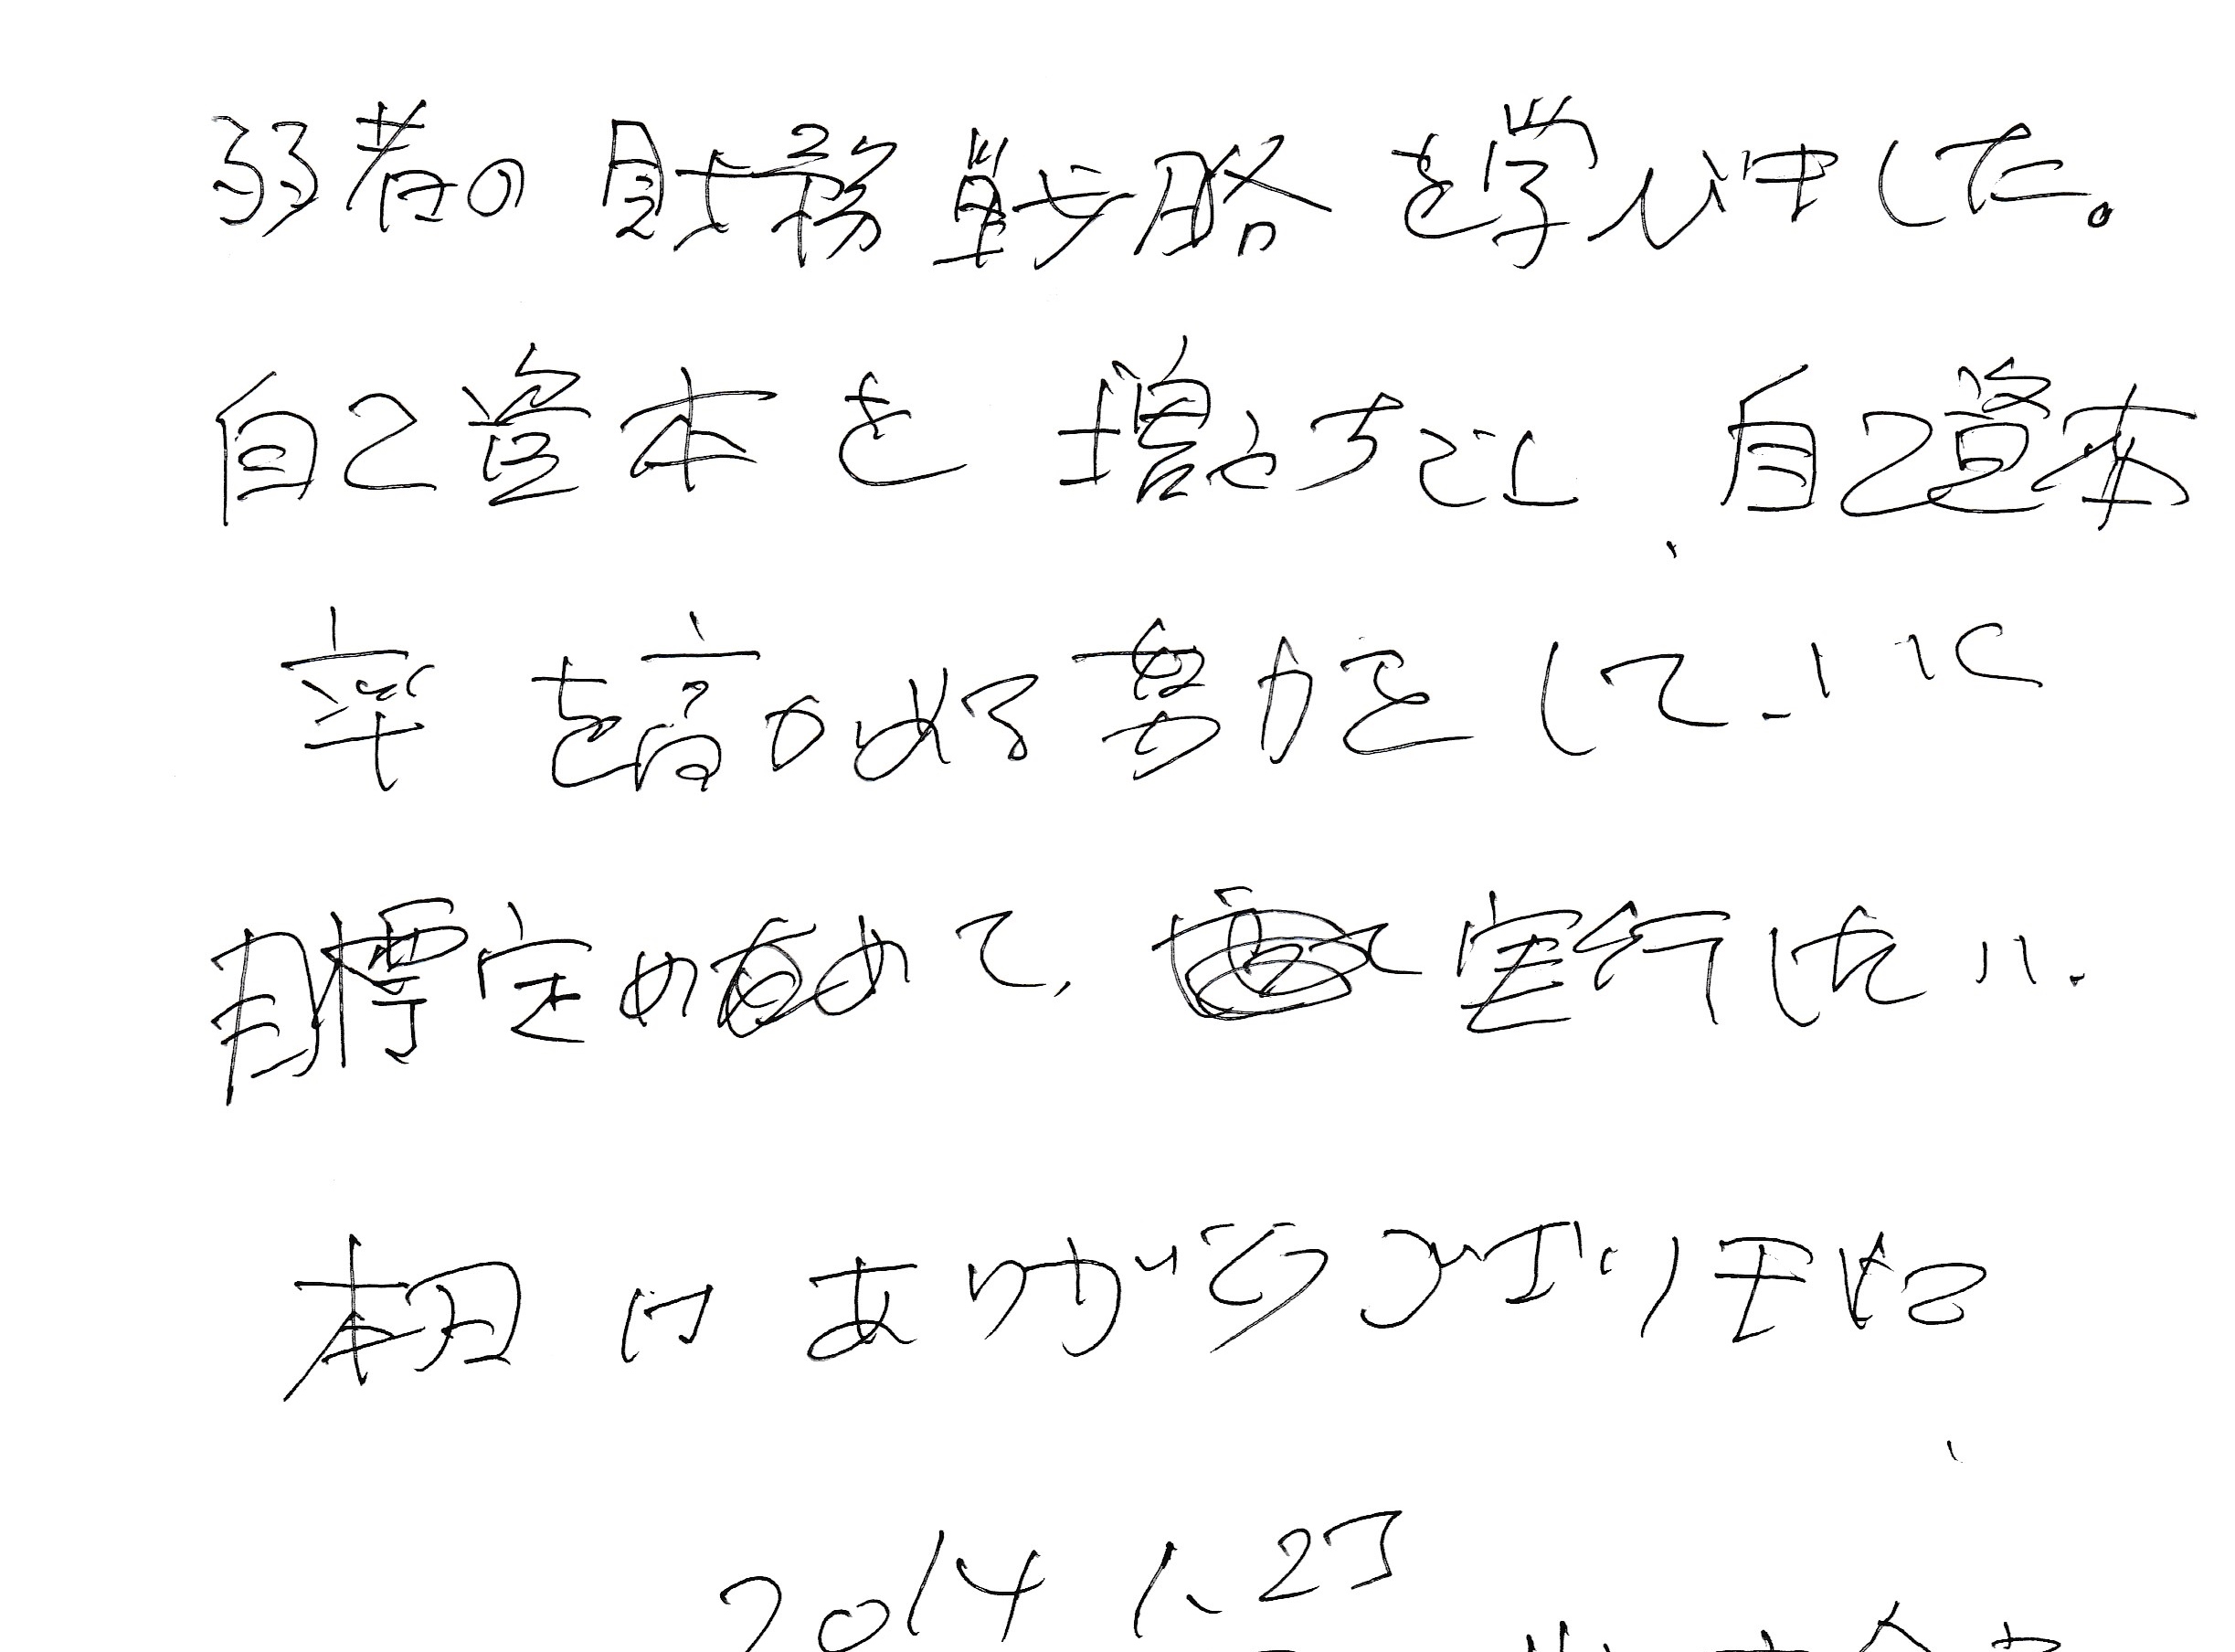 弱者の財務戦略を学びました。
自己資本を増とすごし 自己資本
率を高かめる努力をしていく
目標定めめて、実行したい.
本日はありがとうございました
2014 1.23